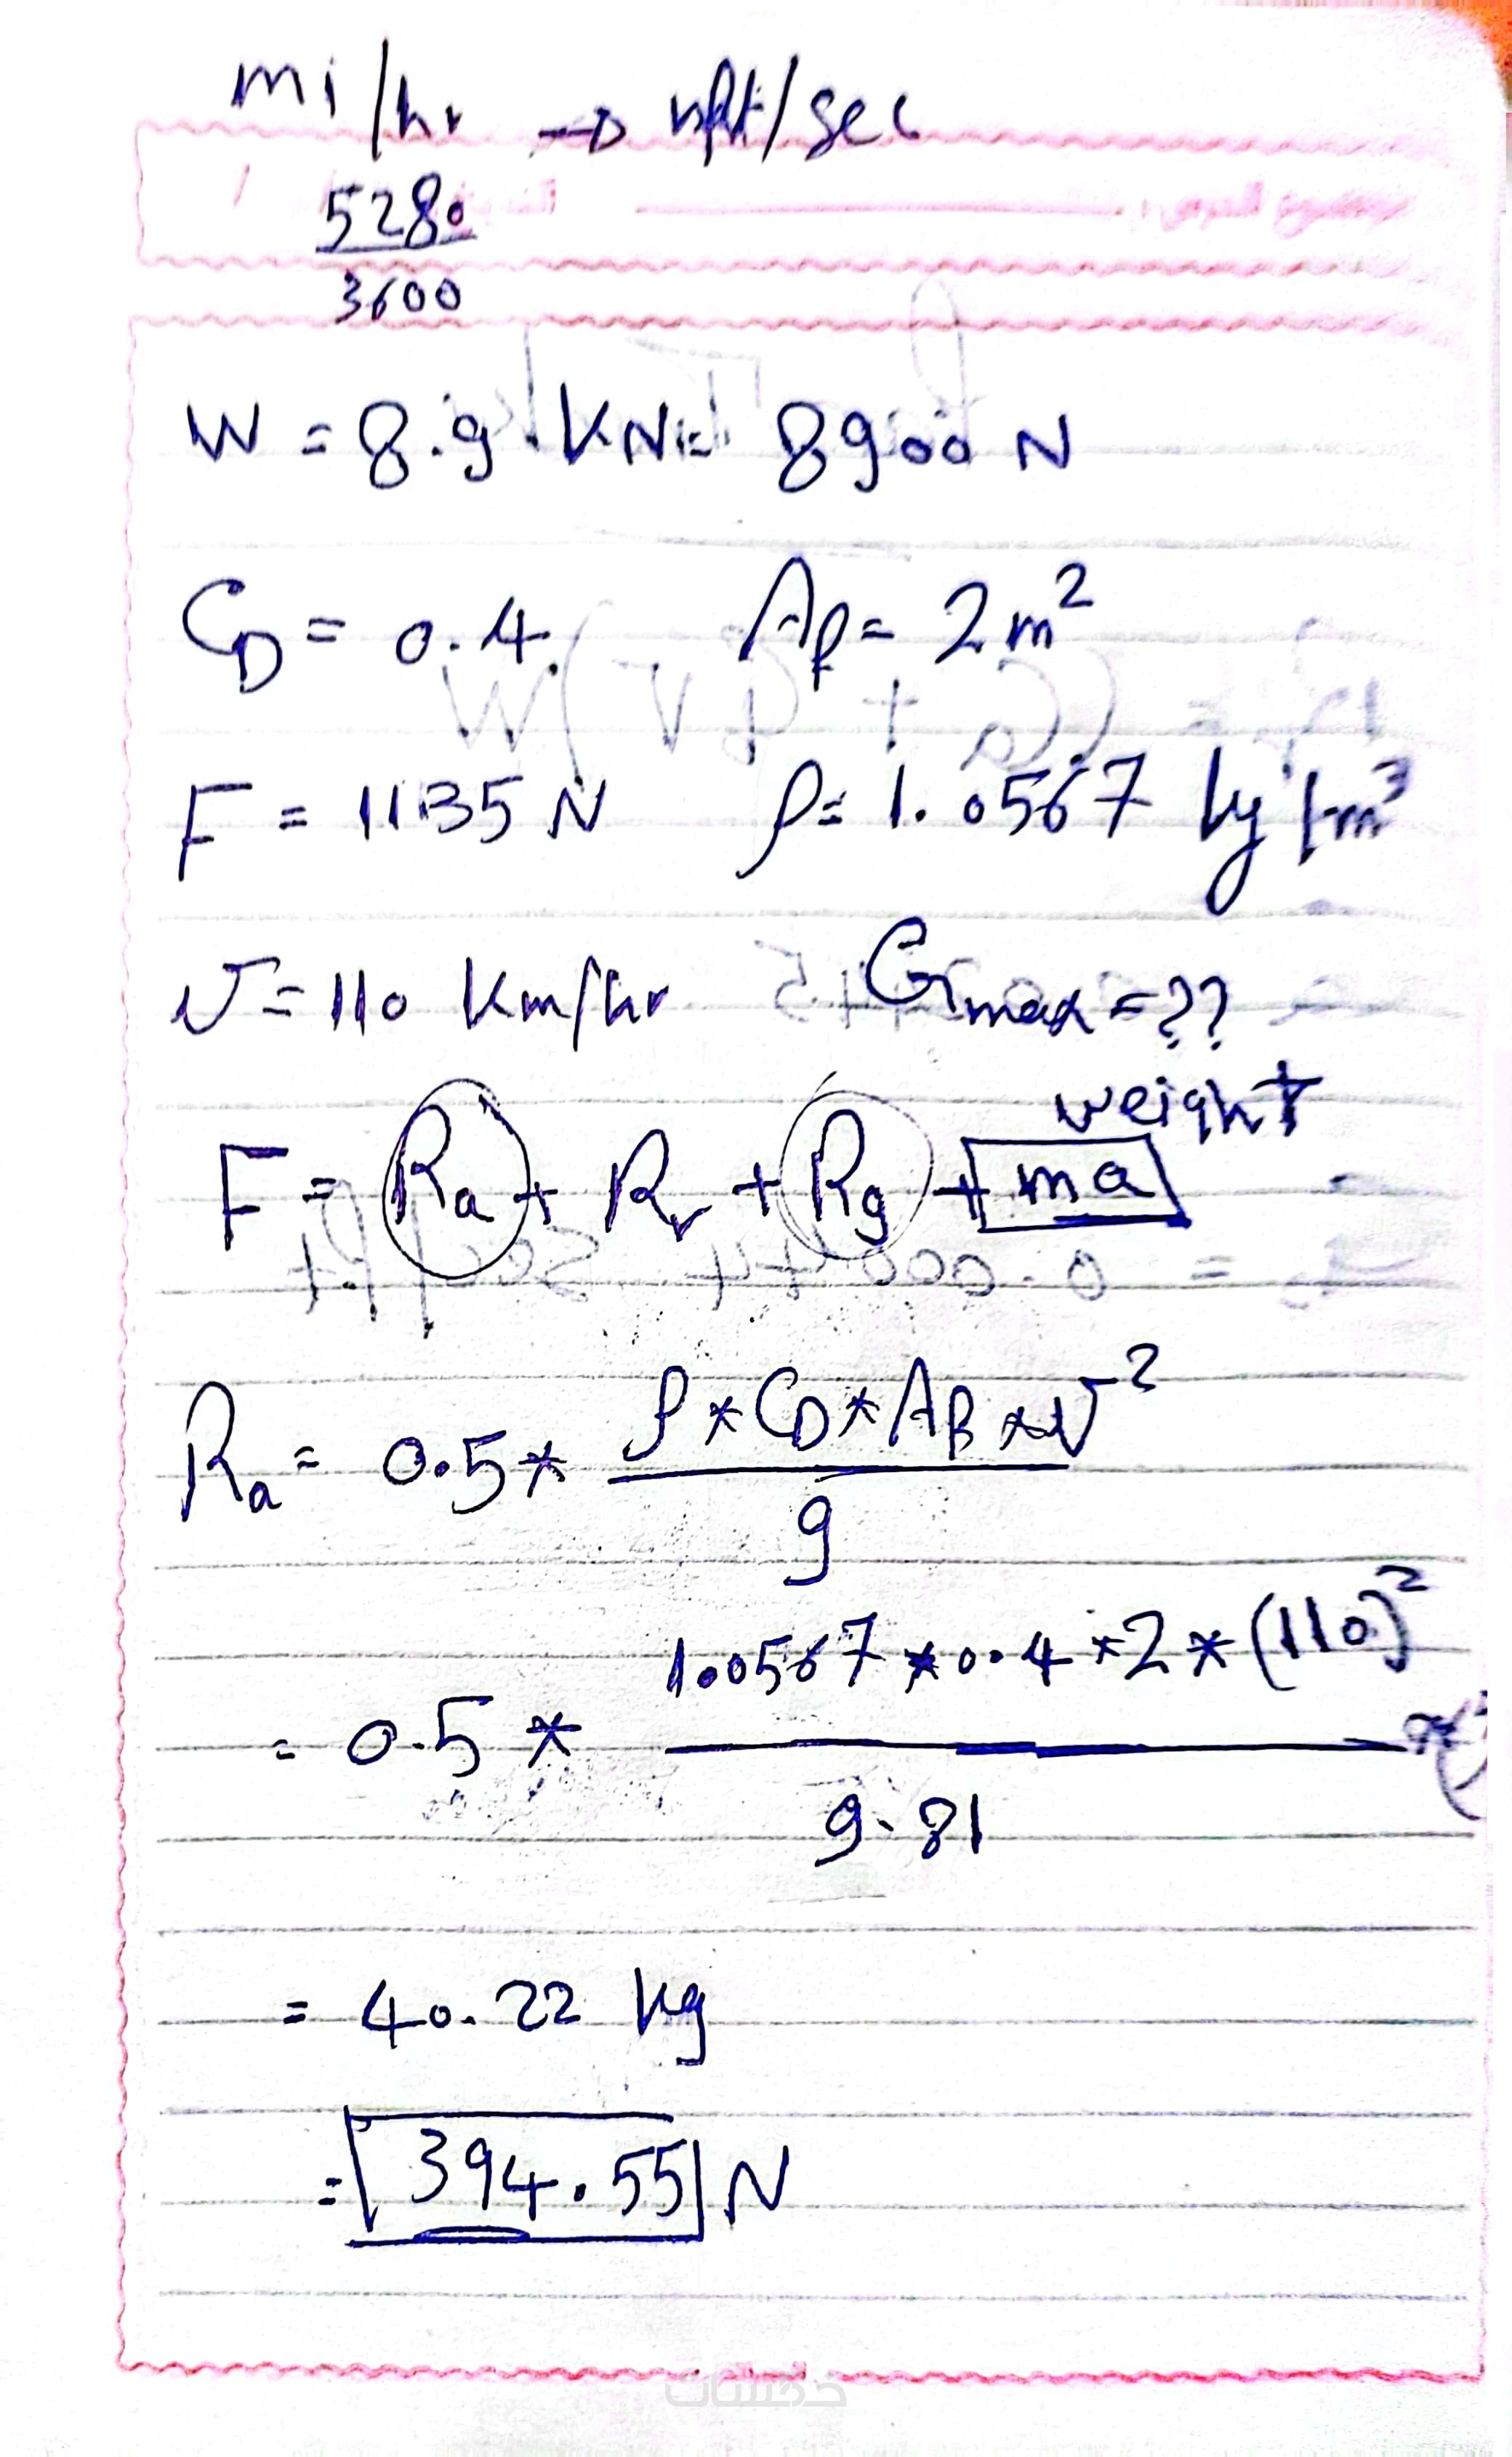 mi/hr → ft/sec
5280
3600
W = 8.9 KN = 8900 N
C_D = 0.4 A_f = 2 m²
F = 1135 N ρ = 1.0567 kg/m³
V = 110 Km/hr G_max = ??
weight
F = R_a + R_r + R_g + ma
R_a = 0.5 * ρ * C_D * A_B * V²
g
= 0.5 * 1.0567 * 0.4 * 2 * (110)²
9.81
= 40.22 kg
= 394.55 N
خمسات